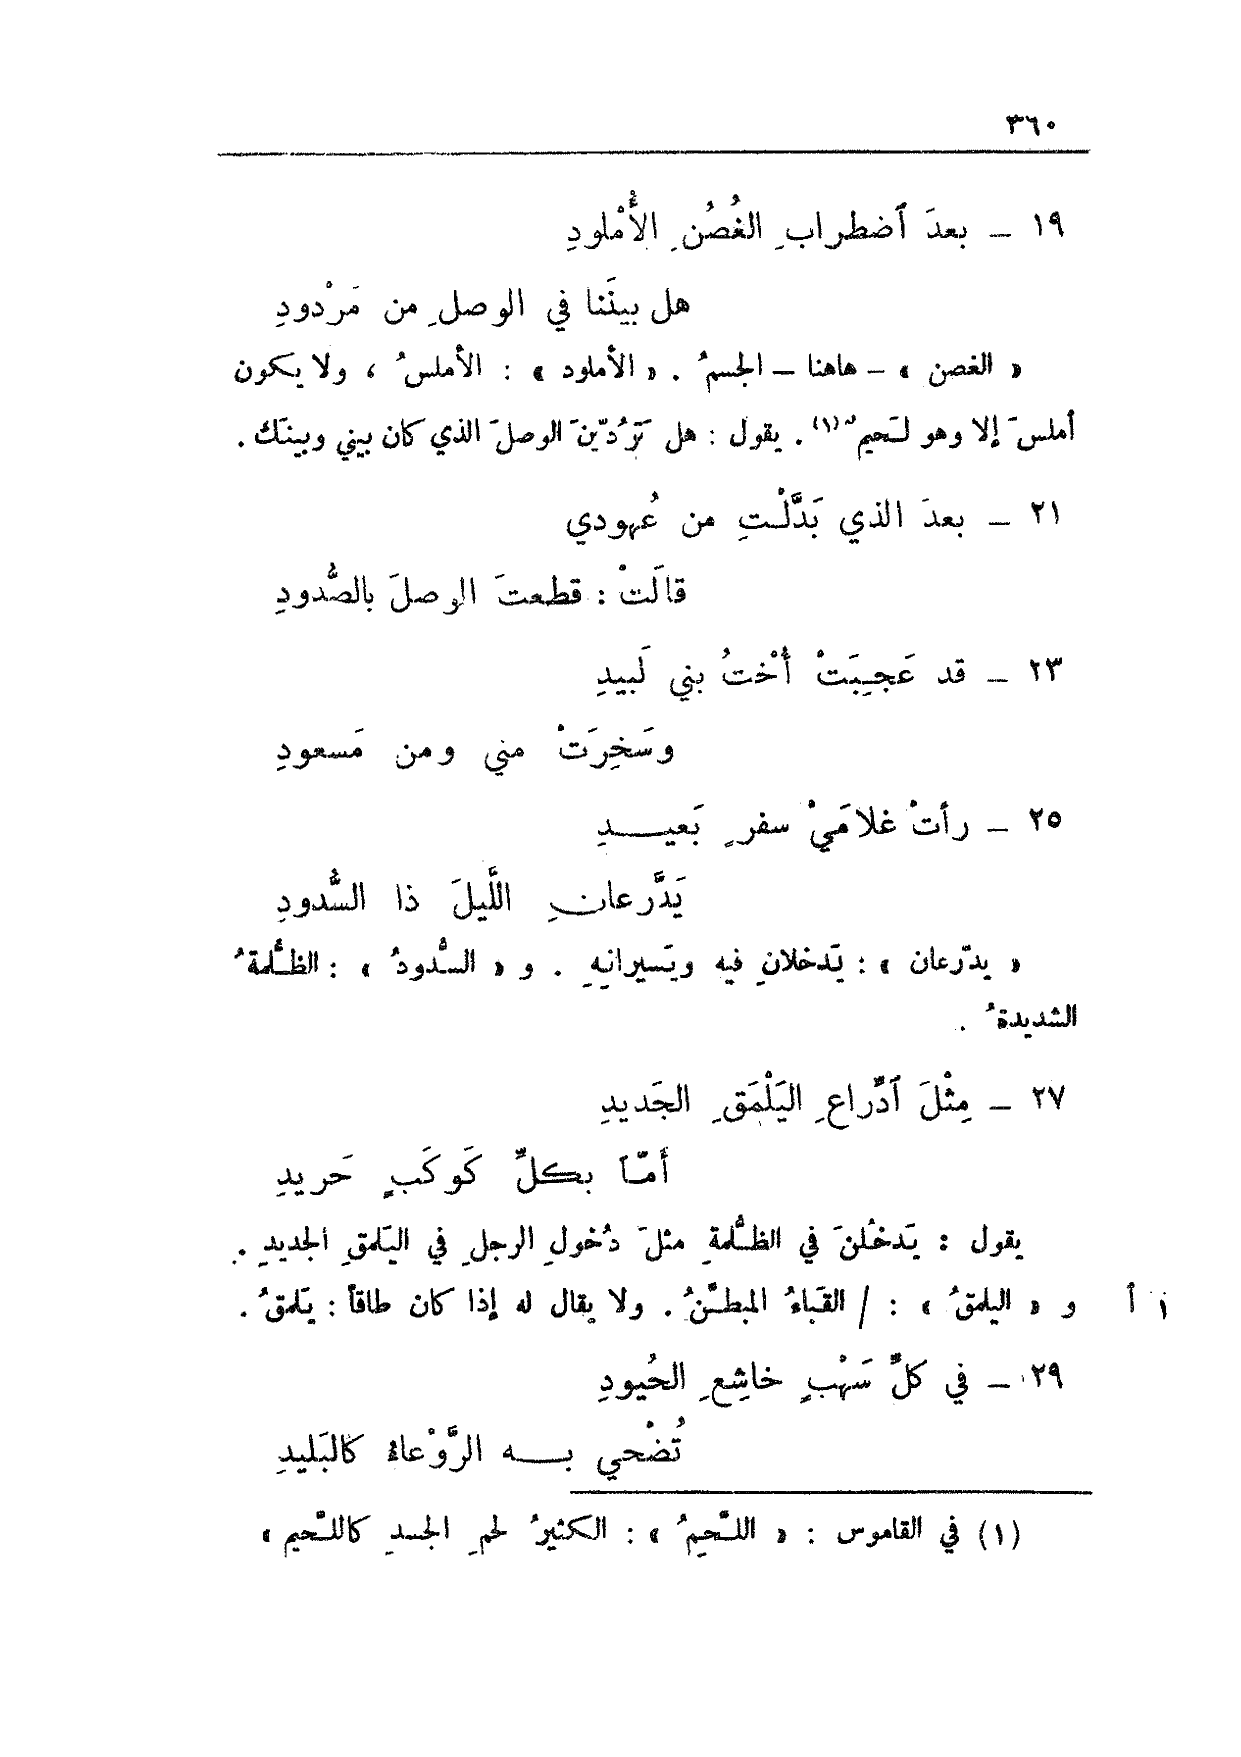 ٣٦٠
١٩ – بعدَ ٱضطرابِ الغُصُنِ الأُمْلودِ
هل بينَنا في الوصلِ من مَرْدودِ
« الغصن » – هاهنا – الجسمُ . « الأملود » : الأملسُ ، ولا يكون
أملسَ إلا وهو لَحيمٌ(١) . يقول : هل تَرُدّينَ الوصلَ الذي كان بيني وبينَك .
٢١ – بعدَ الذي بَدَّلْتِ من عُهودي
قالَتْ : قطعتَ الوصلَ بالصُّدودِ
٢٣ – قد عَجِبَتْ أُخْتُ بني لَبيدِ
وسَخِرَتْ مني ومن مَسعودِ
٢٥ – رأتْ غلامَيْ سفرٍ بَعيدِ
يَدَّرعانِ اللَّيلَ ذا السُّدودِ
« يدّرعان » : يَدخلانِ فيه ويَسيرانِهِ . و « السُّدودُ » : الظُّلمةُ
الشديدةُ .
٢٧ – مِثْلَ ٱدِّراعِ اليَلْمَقِ الجَديدِ
أَمّا بكلِّ كَوكَبٍ حَريدِ
يقول : يَدخُلنَ في الظُّلمةِ مثلَ دُخولِ الرجلِ في اليَلمقِ الجديدِ .
و « اليلمقُ » : / القَباءُ المبطَّنُ . ولا يقال له إذا كان طاقاً : يَلمقُ .
٢٩ – في كلِّ سَهْبٍ خاشِعِ الحُيودِ
تُضْحي بـه الرَّوْعاءُ كالبَليدِ
(١) في القاموس : « اللَّحِيمُ » : الكثيرُ لحمِ الجسدِ كاللَّحيم »